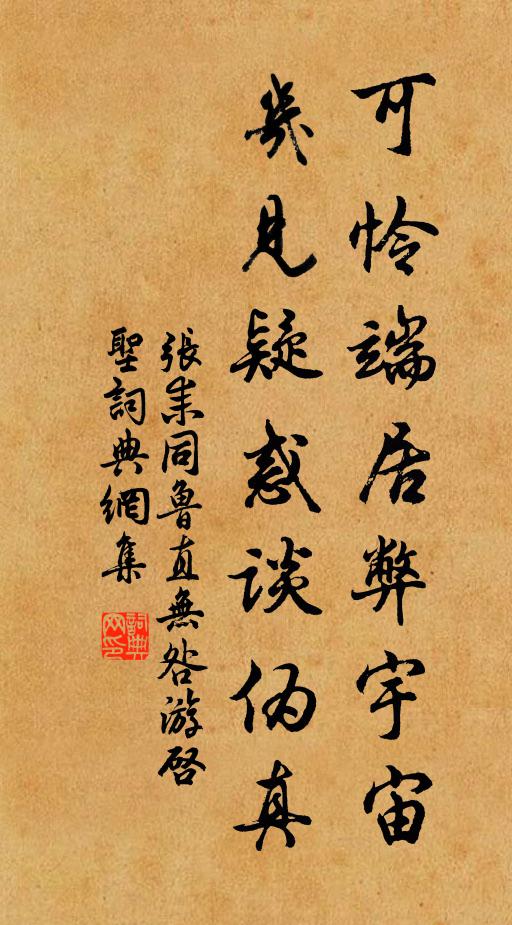 可怜端居弊宇宙
几见疑惑谈伪真
張耒同魯直無咎游啓
聖詞典網集
詞典
网印